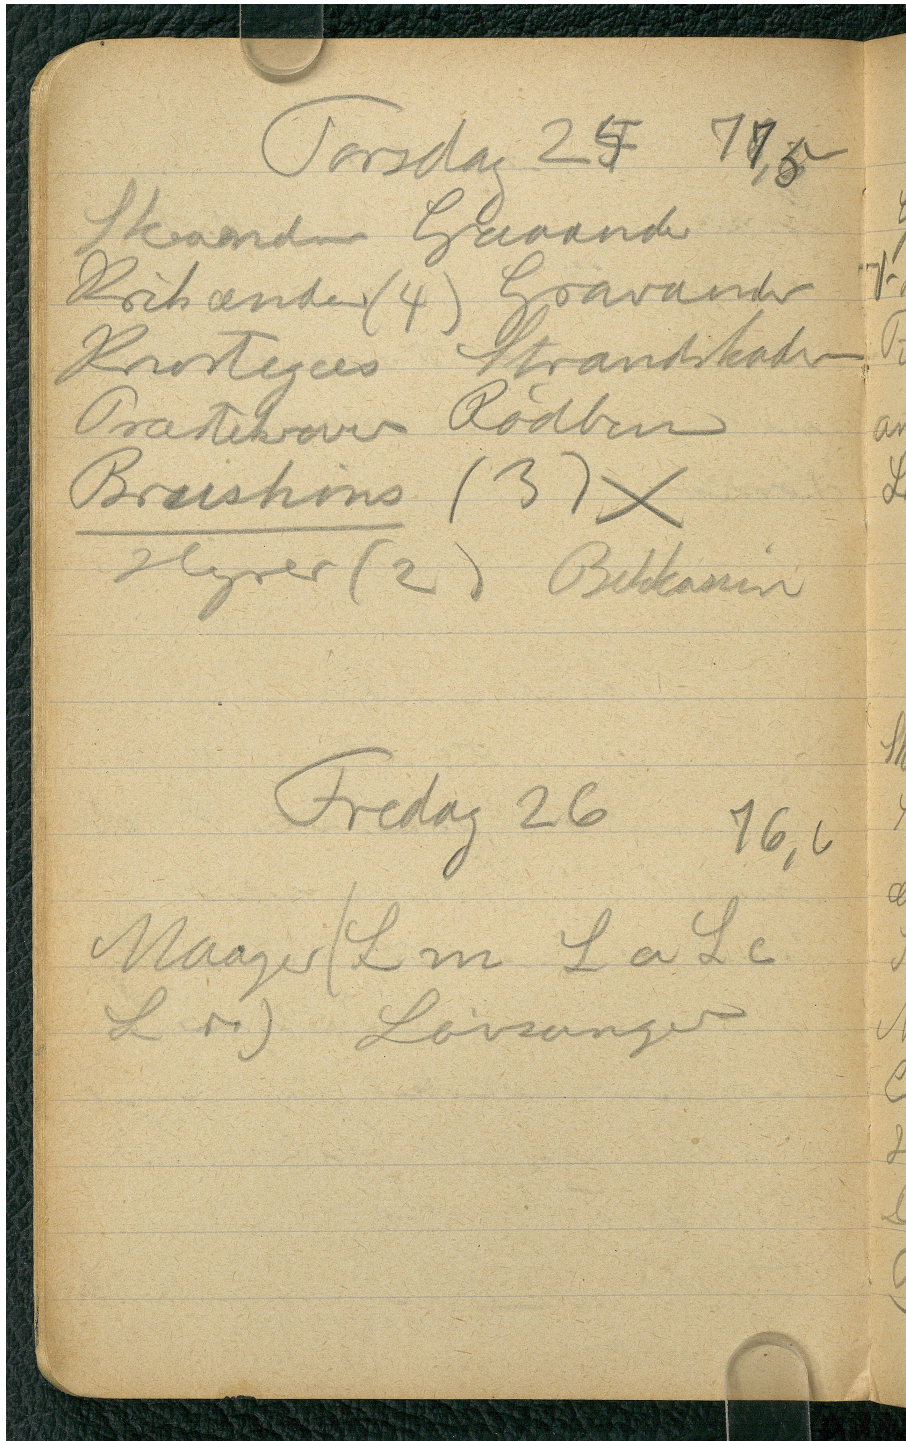 Torsdag 25 77,5
Skeænder Graaand
Krikænder (4) Gravander
Knortegees Strandskader
Præstekraver Rødben
Brushøns (3) X
Hyrer (2) Bekkasin
Fredag 26 76,6
Maager (L m L a L c
L r.) Løvsanger